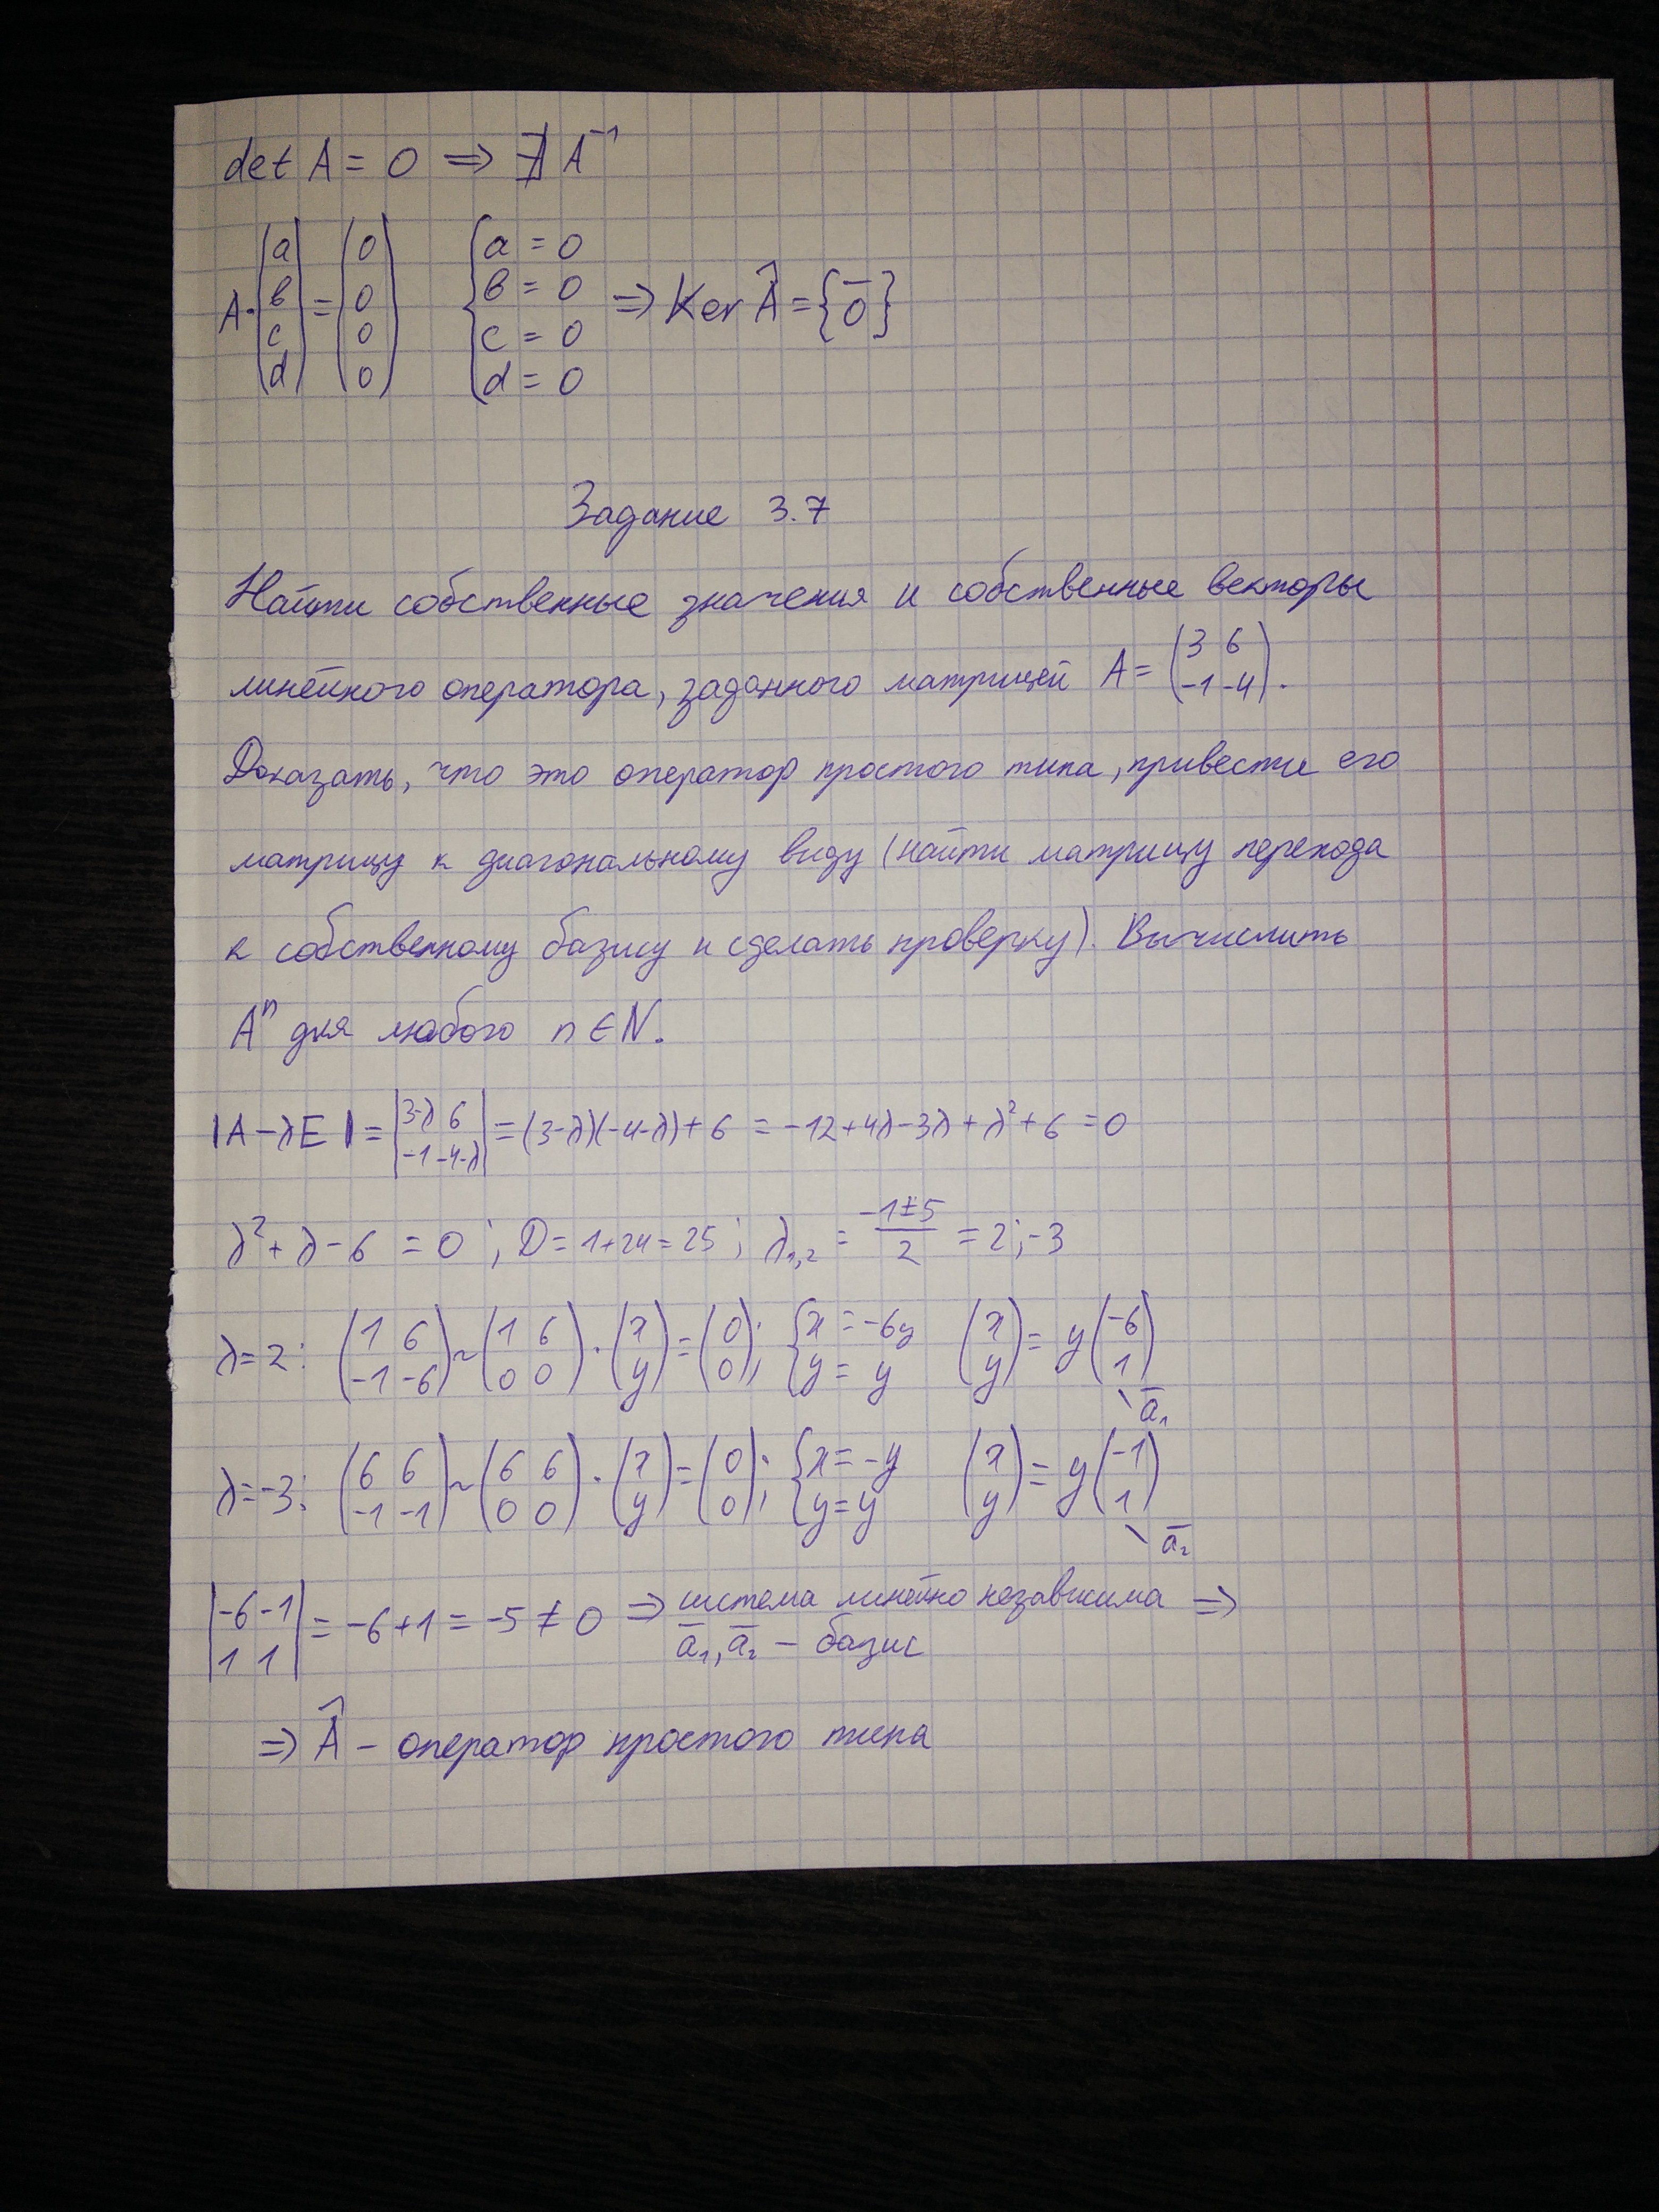 det A = 0 ⇒ ∄ A⁻¹
A·(a b c d) = (0 0 0 0) {a = 0 в = 0 c = 0 d = 0 ⇒ Ker Â = {0̅}
Задание 3.7
Найти собственные значения и собственные векторы
линейного оператора, заданного матрицей A = (3 6 -1 -4).
Доказать, что это оператор простого типа, привести его
матрицу к диагональному виду (найти матрицу перехода
к собственному базису и сделать проверку). Вычислить
Aⁿ для любого n ∈ N.
|A - λE| = |3-λ 6 -1 -4-λ| = (3-λ)(-4-λ) + 6 = -12 + 4λ - 3λ + λ² + 6 = 0
λ² + λ - 6 = 0 ; D = 1 + 24 = 25 ; λ₁,₂ = (-1 ± 5)/2 = 2 ; -3
λ = 2 : (1 6 -1 -6) ~ (1 6 0 0) · (x y) = (0 0) ; {x = -6y y = y (x y) = y (-6 1)
a̅₁
λ = -3 : (6 6 -1 -1) ~ (6 6 0 0) · (x y) = (0 0) ; {x = -y y = y (x y) = y (-1 1)
a̅₂
|-6 -1 1 1| = -6 + 1 = -5 ≠ 0 ⇒ система линейно независима ⇒
a̅₁, a̅₂ - базис
⇒ Â - оператор простого типа